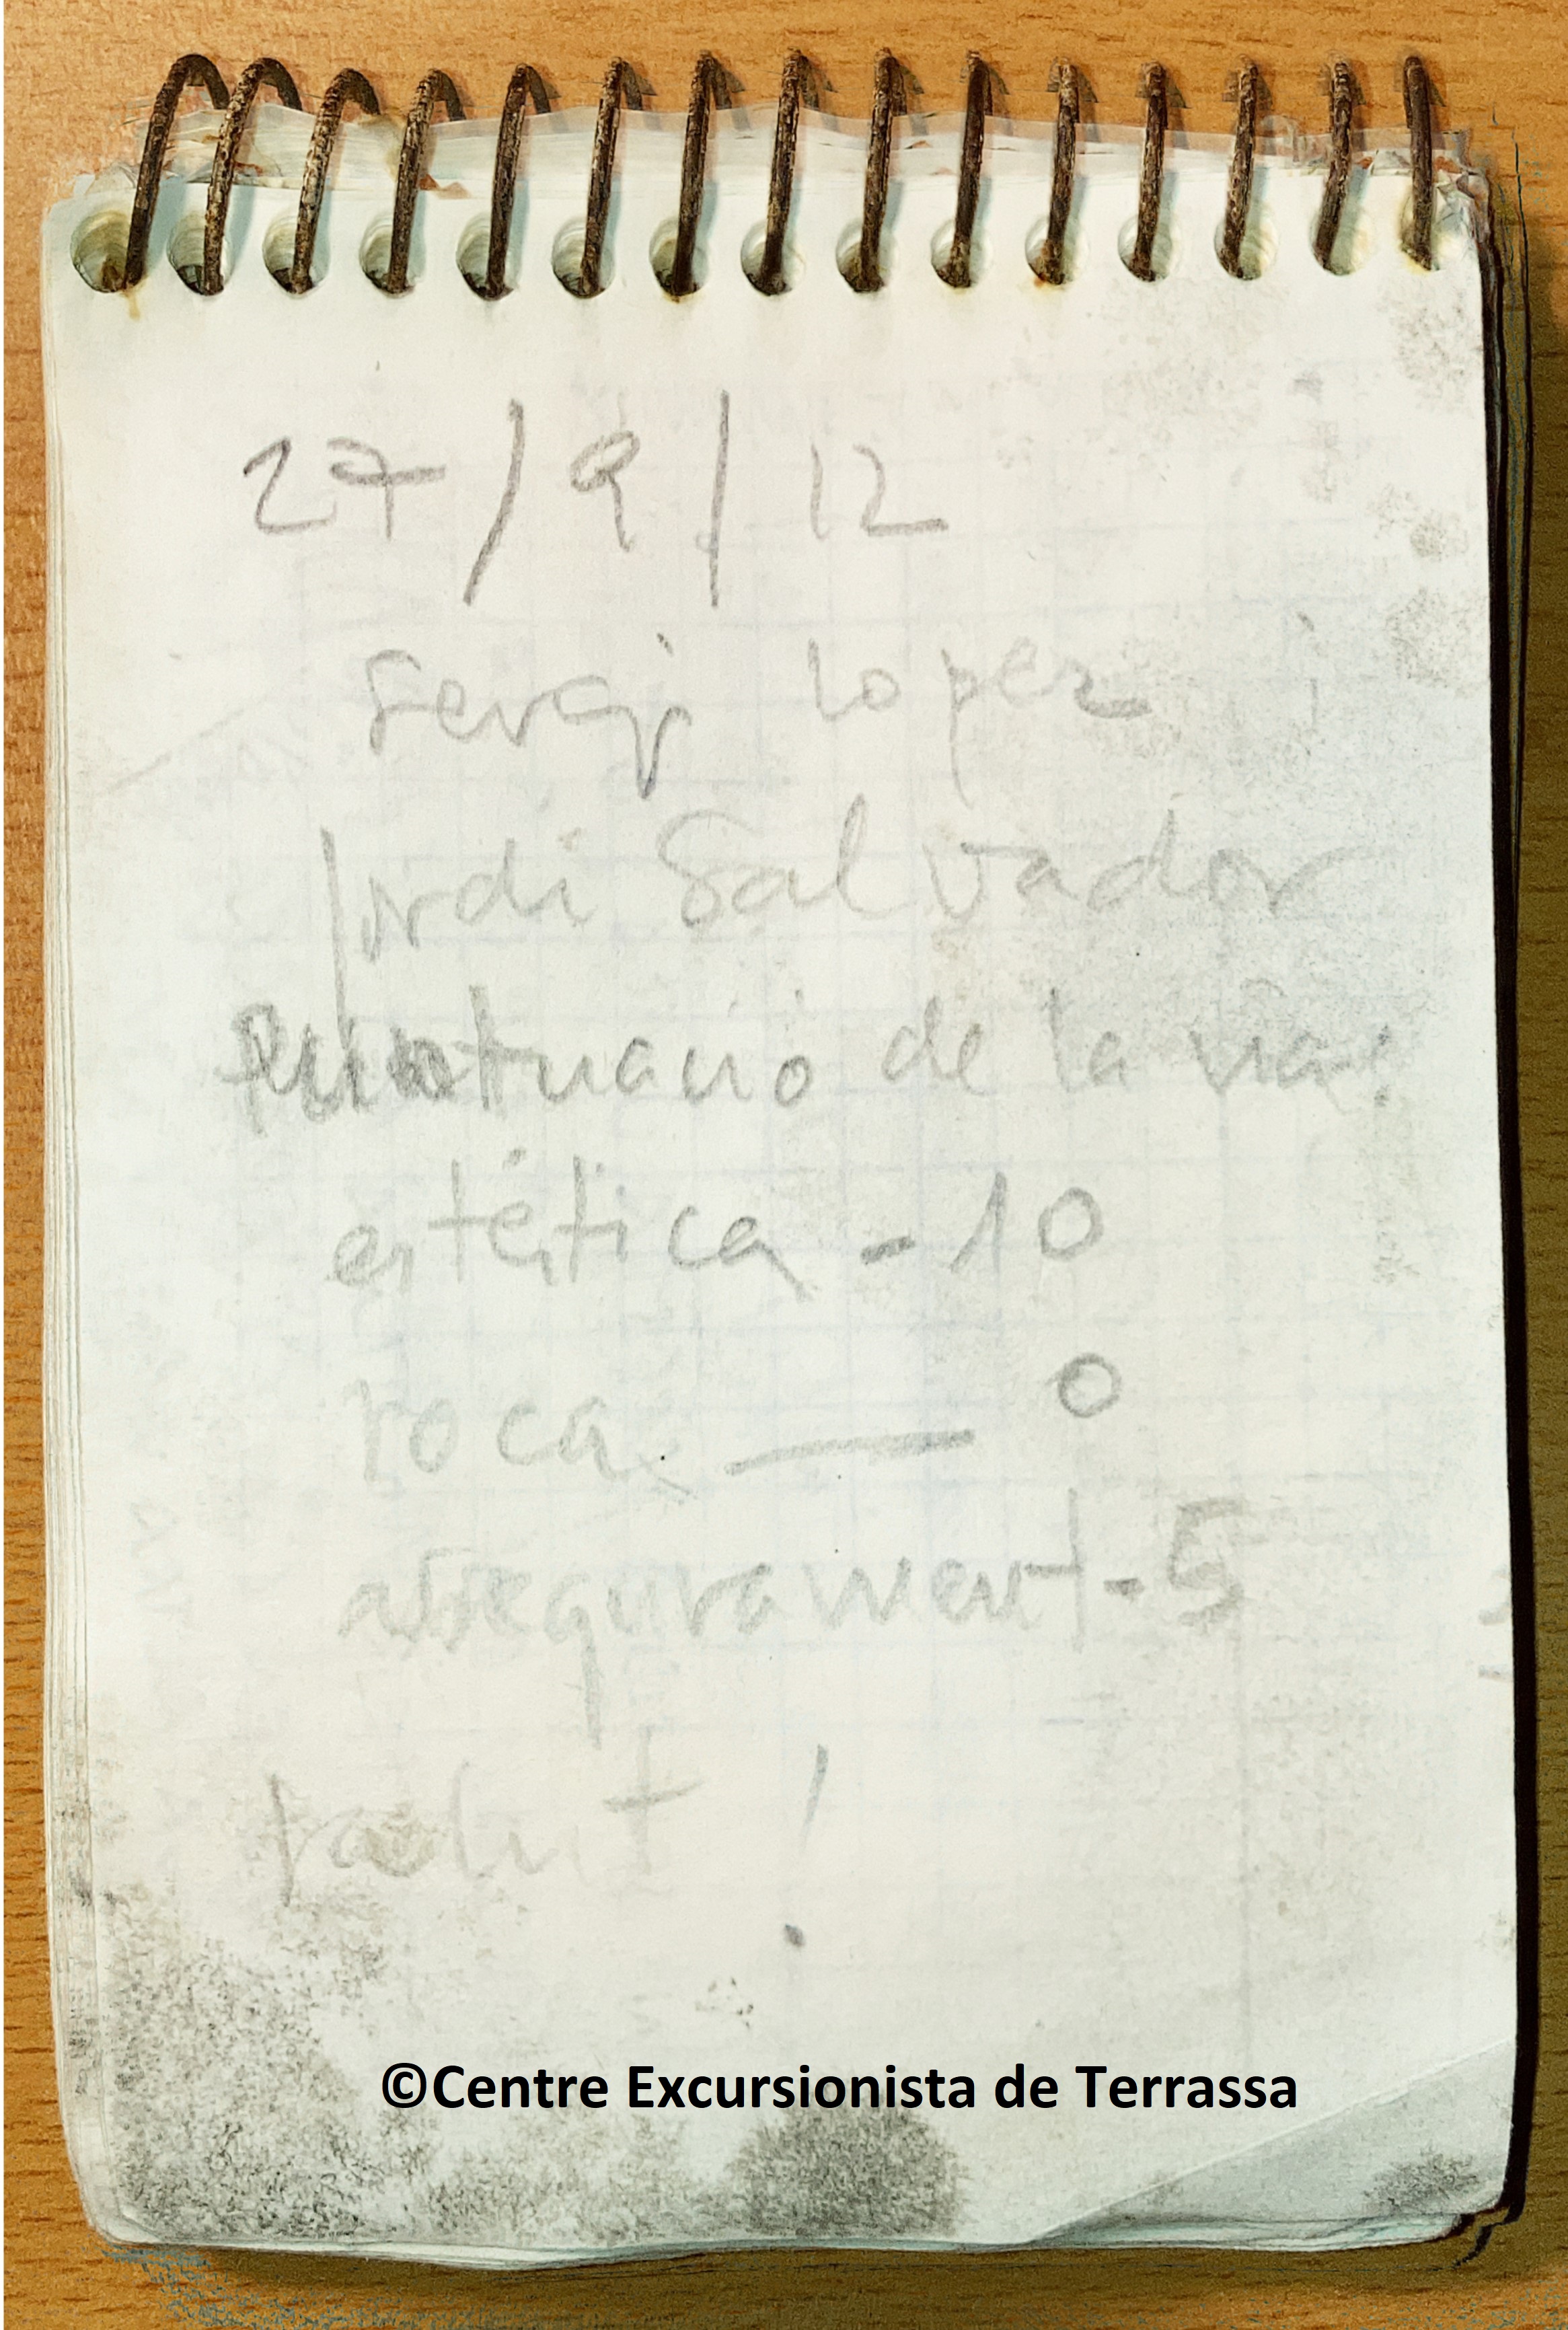 27/9/12
Sergi Lopez
Jordi Salvador
Puntuació de la via:
estética - 10
roca — 0
assegurament - 5
salut!
©Centre Excursionista de Terrassa